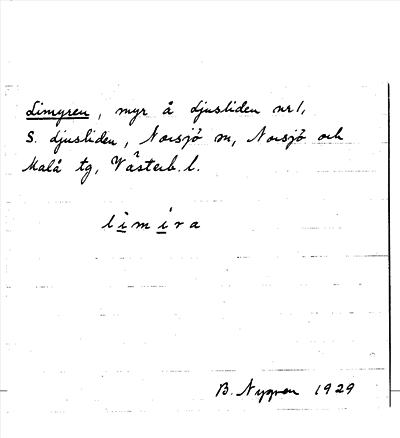 Limyren, myr å Ljusliden nr 1,
S. Ljusliden, Norsjö sn, Norsjö och
Malå tg, Västerb. l.
limira
B. Nygren 1929